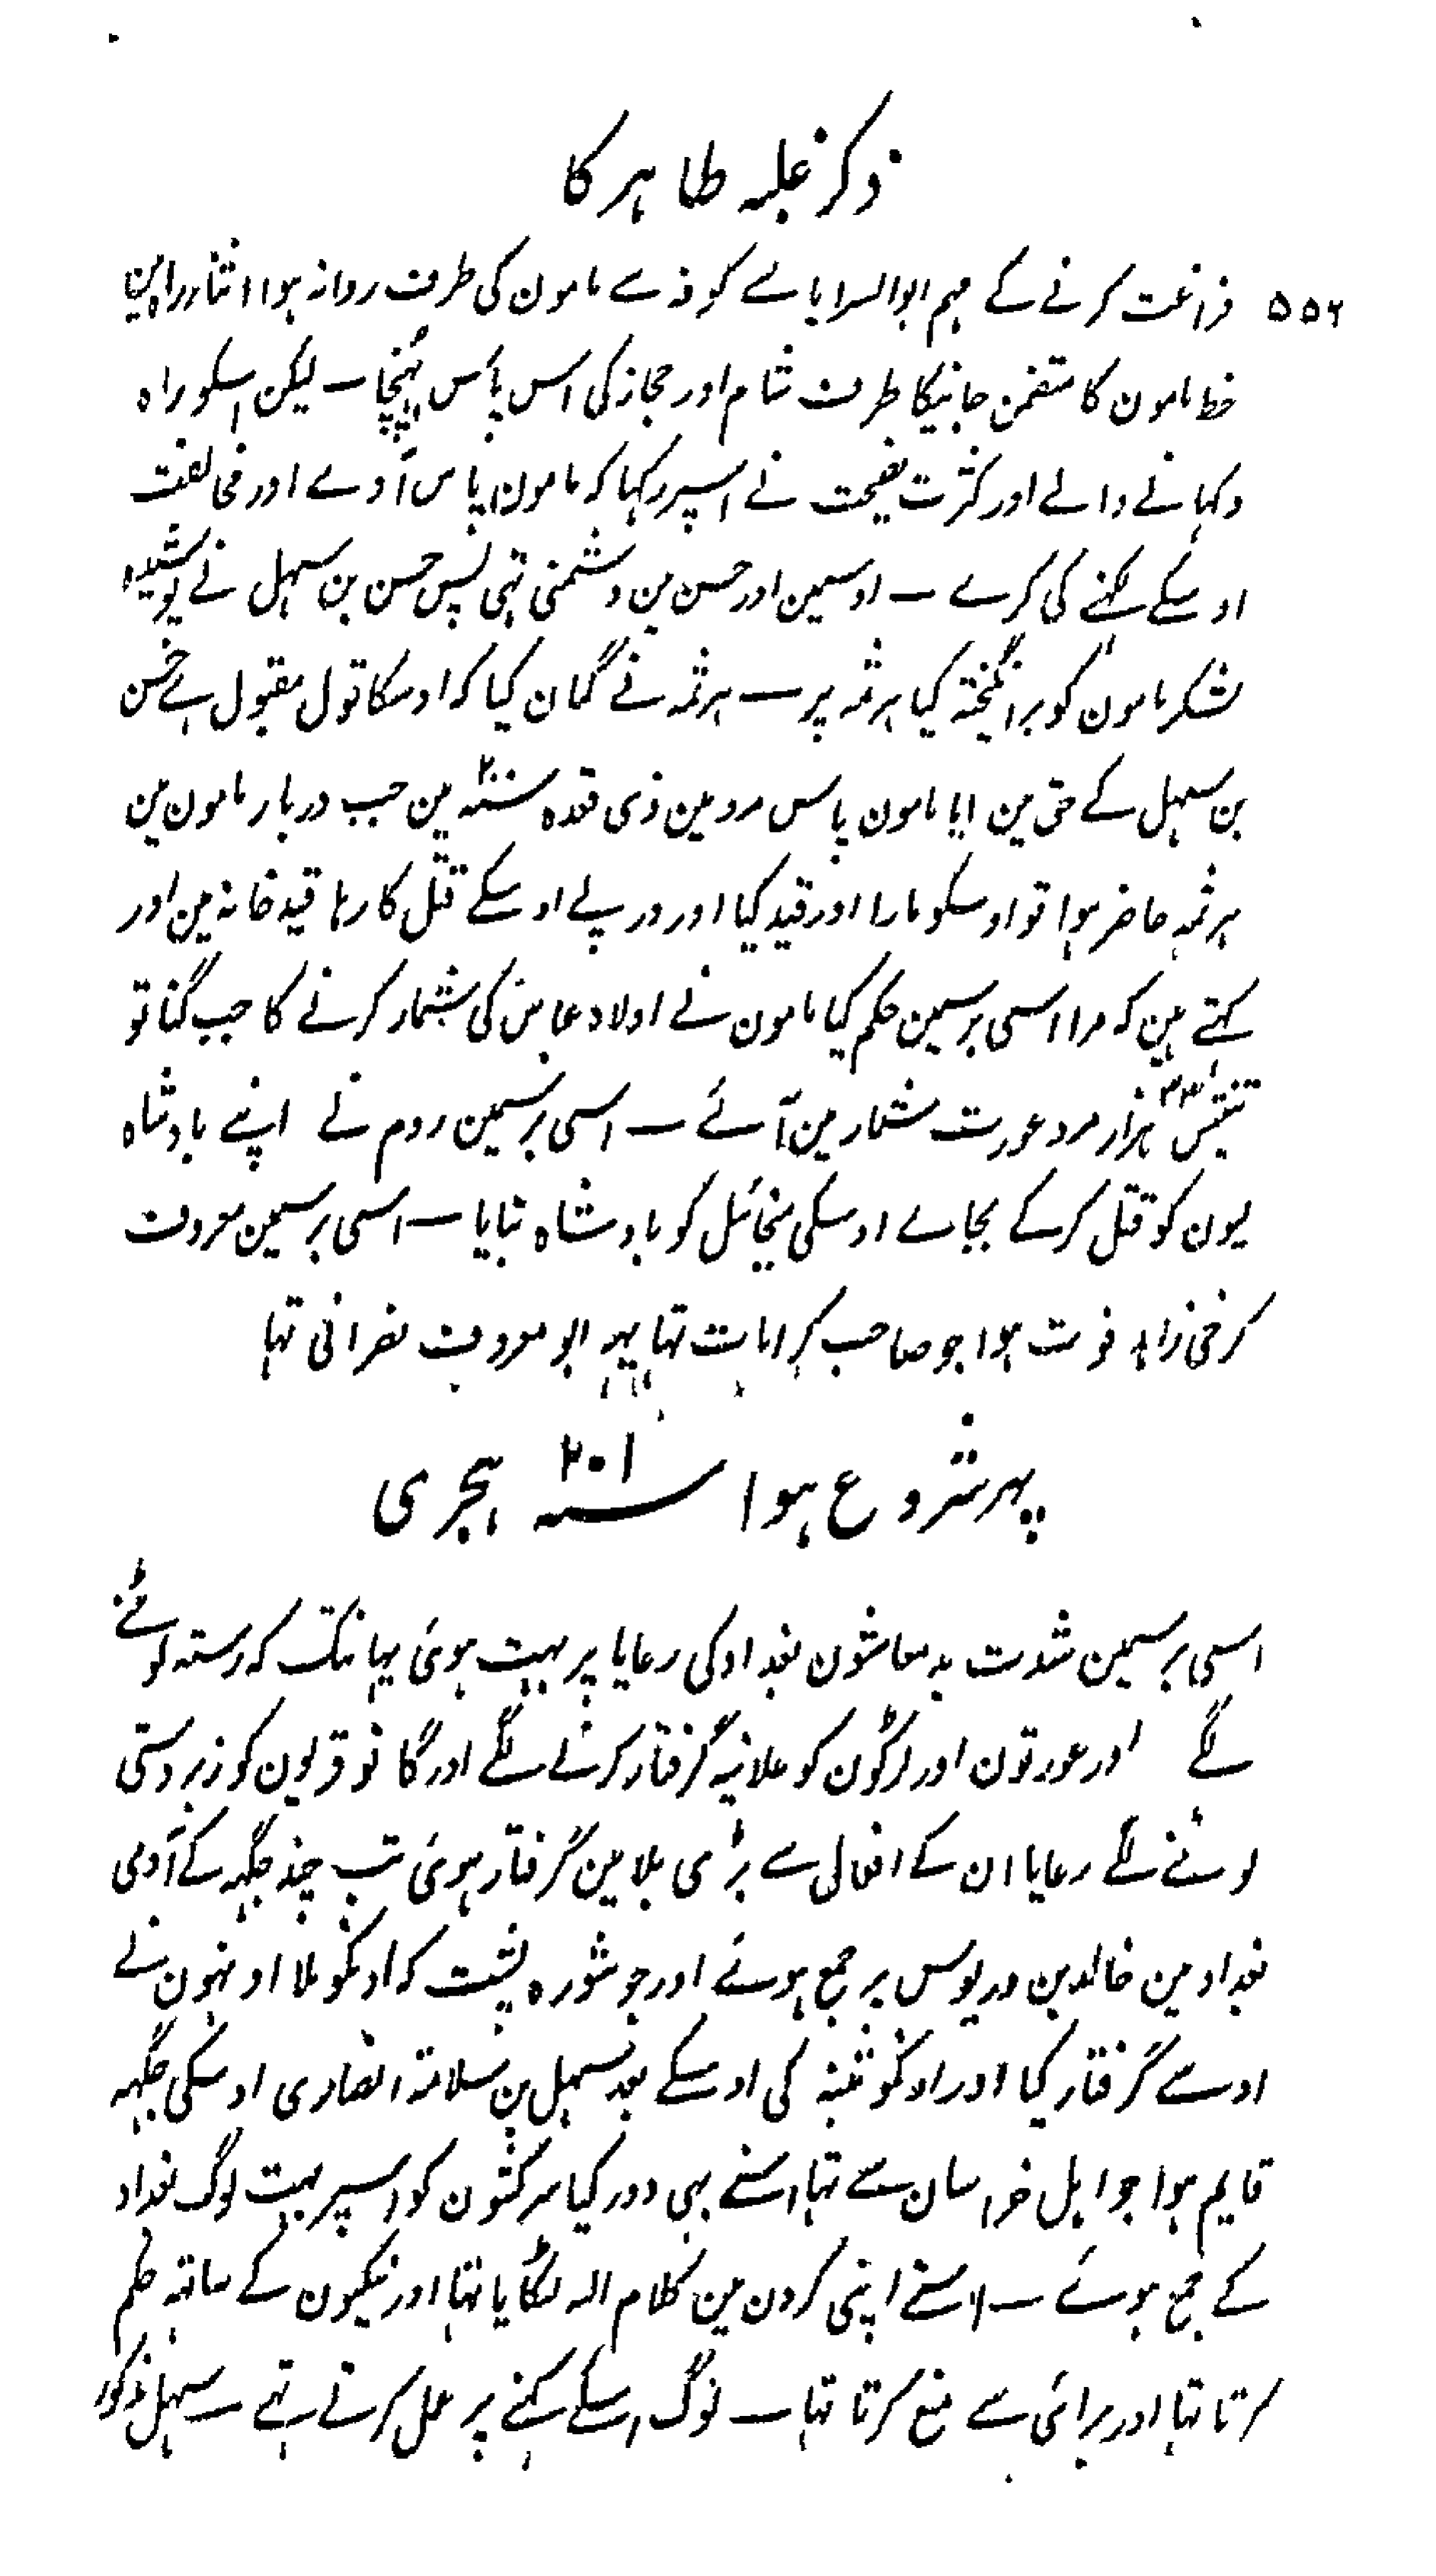 ذکر غلبہ طاہر کا
۵۵۶ فراغت کرنے کے مہم ابو السرایا سے کوفہ سے مامون کی طرف روانہ ہوا اثناء راہ مین
خط مامون کا متضمن جانیکا طرف شام اور حجاز کی اس پاس پہنچا — لیکن اسکو راہ
دکہانے والے اور کثرت نصیحت نے اسپر رکہا کہ مامون پاس آوے اور مخالفت
اوسکے لکہنے کی کرے — اوسمین اور حسن مین دشمنی تہی پس حسن بن سہل نے پوشیدہ
لشکر مامون کو برانگیختہ کیا ہرثمہ پر — ہرثمہ نے گمان کیا کہ اوسکا قول مقبول ہے حسن
بن سہل کے حق مین ایا مامون پاس مرو مین ذی قعدہ سنہ ۲۰۰ مین جب دربار مامون مین
ہرثمہ حاضر ہوا تو اوسکو مارا اور قید کیا اور درپے اوسکے قتل کا رہا قید خانہ مین اور
کہتے ہین کہ مرا اسی برسمین حکم کیا مامون نے اولاد عباس کی شمار کرنے کا جب گنا تو
تینتیس ۳۳ ہزار مرد عورت شمار مین آئے — اسی برسمین روم نے اپنے بادشاہ
لیون کو قتل کر کے بجاے اوسکی میخائل کو بادشاہ بنایا — اسی برسمین معروف
کرخی زاہد فوت ہوا جو صاحب کرامات تہا یہہ ابو معروف نصرانی تہا
پہر شروع ہوا سنہ ۲۰۱ ہجری
اسی برسمین شدت بدمعاشون بغداد کی رعایا پر بہت ہوئی یہانتک کہ رستہ لوٹنے
لگے اور عورتون اور لڑکون کو علانیہ گرفتار کرنے لگے اور گانو قریون کو زبردستی
لوٹنے لگے رعایا ان کے افعال سے بڑی بلا مین گرفتار ہوئی تب چند جگہہ کے آدمی
بغداد مین خالد بن دریوس پر جمع ہوئے اور جو شورہ پشت کہ اونکو ملا اونہون نے
اوسے گرفتار کیا اور اونکو تنبیہ کی اوسکے بعد سہل بن سلامۃ انصاری اوسکی جگہہ
قایم ہوا جو اہل خراسان سے تہا اسنے بہی دور کیا سرکشون کو اسپر بہت لوگ بغداد
کے جمع ہوئے — اسنے اپنی گردن مین کلام اللہ لٹکایا تہا اور نیکیون کے ساتہہ حکم
کرتا تہا اور برائی سے منع کرتا تہا — لوگ اسکے کہنے پر عمل کرتے تہے — سہل مذکور